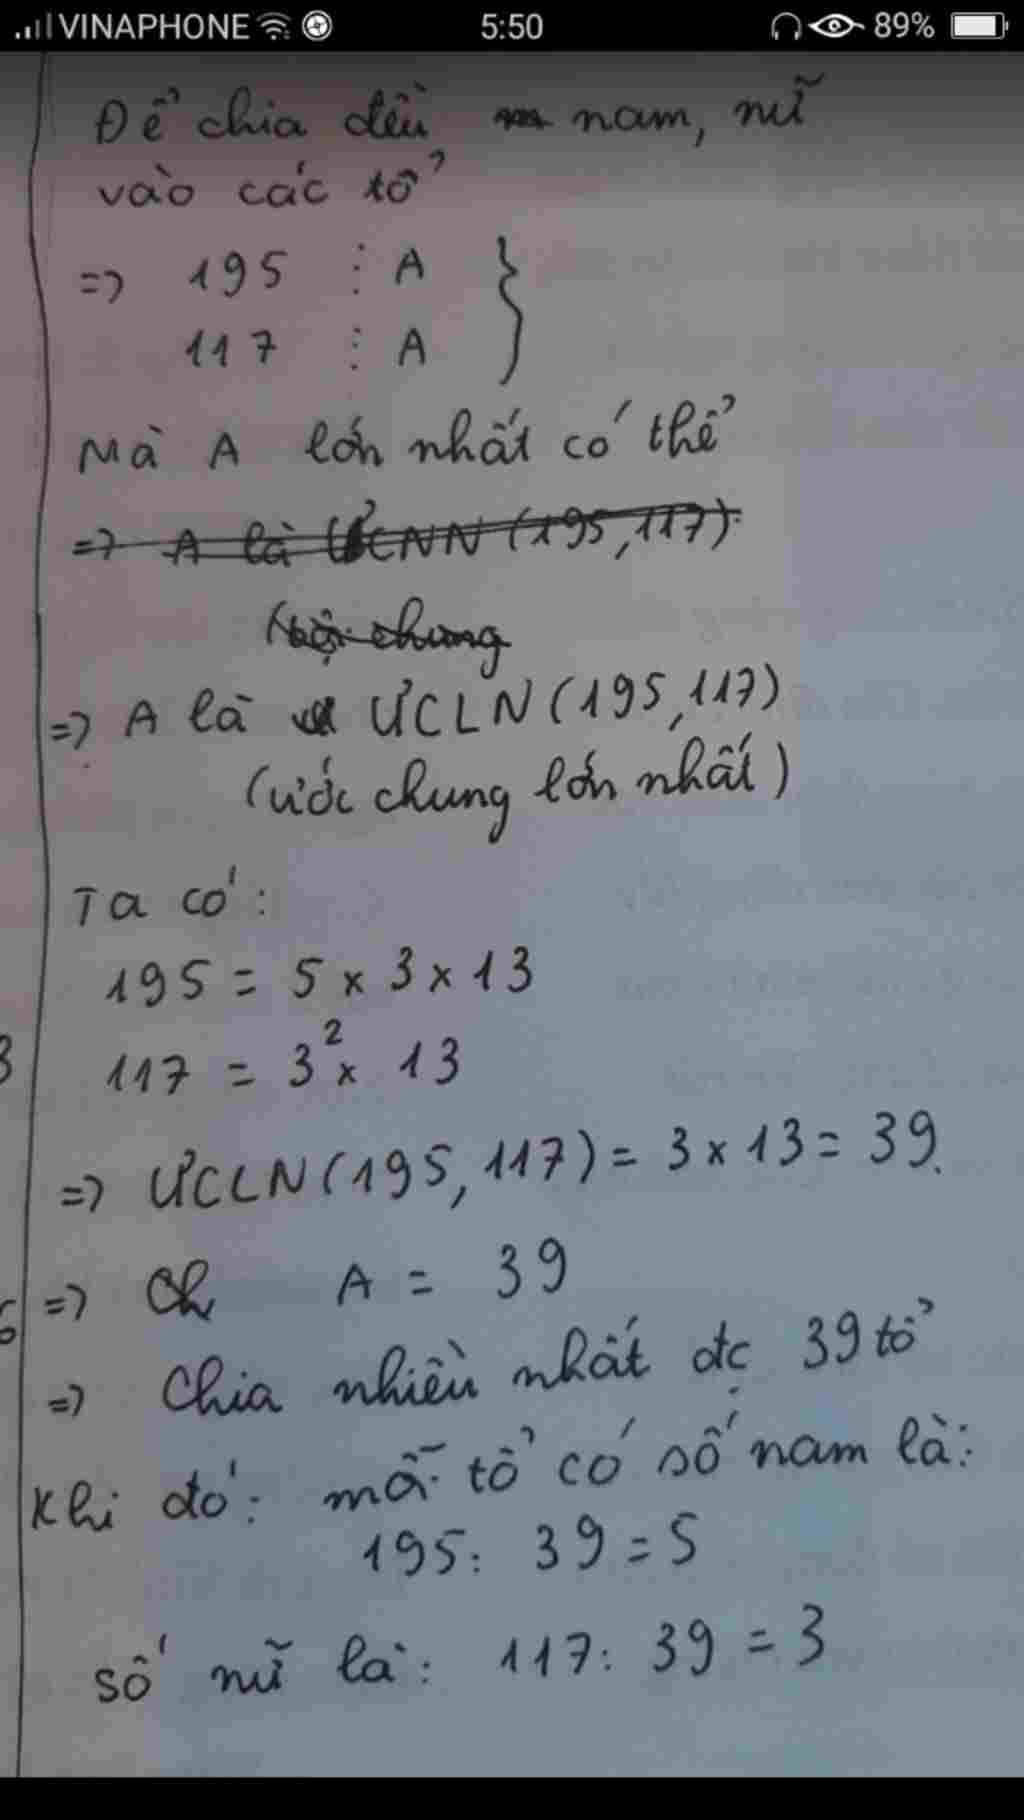 VINAPHONE 5:50 89%
Để chia đều nam, nữ
vào các tổ
=> 195 ⋮ A }
117 ⋮ A
Mà A lớn nhất có thể
=> A là ƯCNN (195, 117)
chung
=> A là ƯCLN (195, 117)
(ước chung lớn nhất)
Ta có:
195 = 5 x 3 x 13
3
117 = 3² x 13
=> ƯCLN (195, 117) = 3 x 13 = 39.
=> Ch A = 39
=> Chia nhiều nhất đc 39 tổ
Khi đó: mỗi tổ có số nam là:
195 : 39 = 5
số nữ là: 117 : 39 = 3